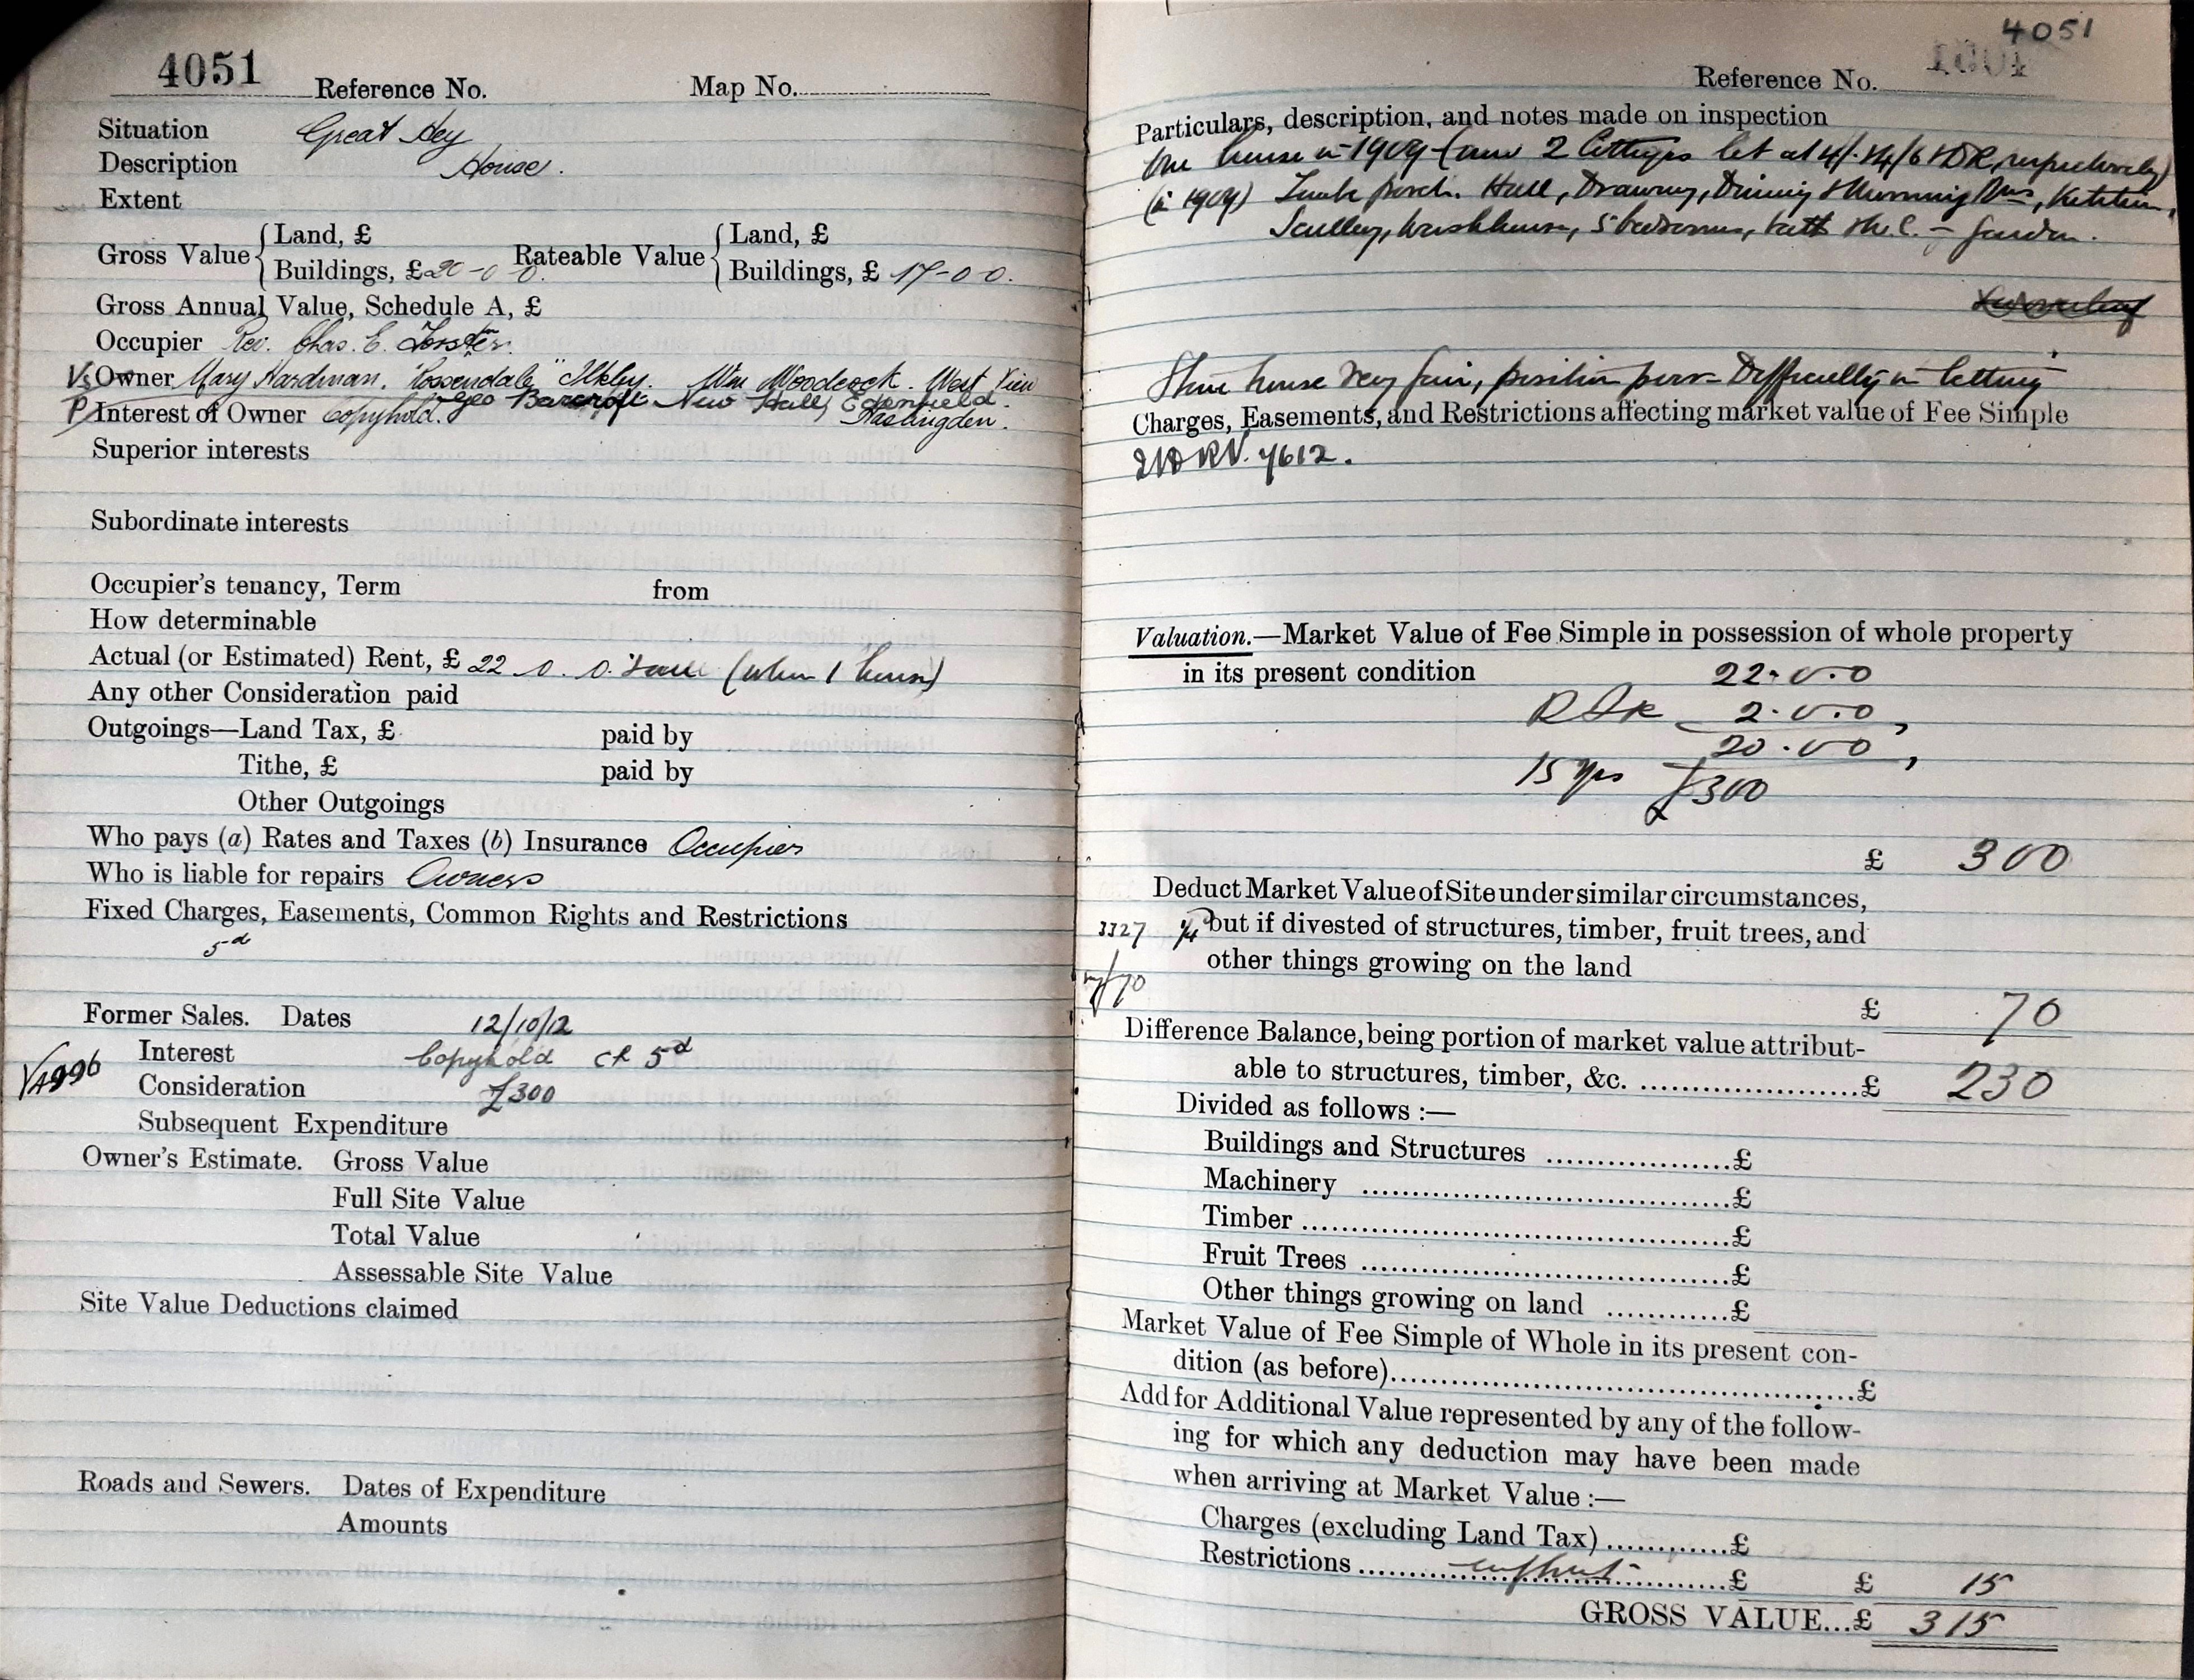 4051 Reference No. Map No.
Situation Great Hey
Description House.
Extent
Gross Value { Land, £ Rateable Value { Land, £
Buildings, £ 20-0-0. Buildings, £ 17-0-0.
Gross Annual Value, Schedule A, £
Occupier Rev. Chas. E. Forster.
Vs Owner Mary Hardman. "Rossendale" Ilkley. Wm Woodcock. West View
Haslingden.
Geo Barcroft New Hall, Edenfield.
P Interest of Owner Copyhold.
Superior interests
Subordinate interests
Occupier's tenancy, Term from
How determinable
Actual (or Estimated) Rent, £ 22 . 0 . 0. (when 1 house)
Any other Consideration paid
Outgoings—Land Tax, £ paid by
Tithe, £ paid by
Other Outgoings
Who pays (a) Rates and Taxes (b) Insurance Occupier
Who is liable for repairs Owners
Fixed Charges, Easements, Common Rights and Restrictions
5d
Former Sales. Dates 12/10/12
Interest Copyhold CR 5d
Consideration £300
Subsequent Expenditure
Owner's Estimate. Gross Value
Full Site Value
Total Value
Assessable Site Value
Site Value Deductions claimed
Roads and Sewers. Dates of Expenditure
Amounts
4051
Reference No.
Particulars, description, and notes made on inspection
One house in 1909 (now 2 cottages let at 4/- & 4/6 respectively)
(in 1909) porch. Hall, Drawing, Dining & Morning Rms, Kitchen,
Scullery, Washhouse, 5 bedrooms, bath & W.C. – garden.
Stone house very fair, position poor – Difficulty in letting
Charges, Easements, and Restrictions affecting market value of Fee Simple
7612.
Valuation.—Market Value of Fee Simple in possession of whole property
in its present condition 22.0.0
2.0.0
20.0.0
15 yrs £300
£ 300
Deduct Market Value of Site under similar circumstances,
3327 but if divested of structures, timber, fruit trees, and
other things growing on the land
70
£ 70
Difference Balance, being portion of market value attribut-
able to structures, timber, &c. £ 230
Divided as follows :—
Buildings and Structures £
Machinery £
Timber £
Fruit Trees £
Other things growing on land £
Market Value of Fee Simple of Whole in its present con-
dition (as before) £
Add for Additional Value represented by any of the follow-
ing for which any deduction may have been made
when arriving at Market Value :—
Charges (excluding Land Tax) £
Restrictions £ £ 15
GROSS VALUE...£ 315